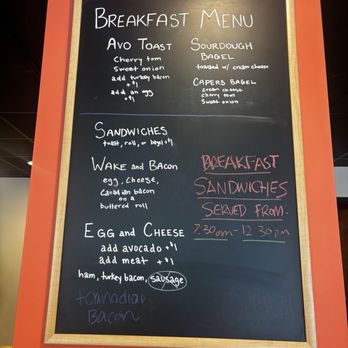 BREAKFAST MENU
AVO TOAST
cherry tom
sweet onion
add turkey bacon
+$1
add an egg
+$1
SOURDOUGH
BAGEL
toasted w/ cream cheese
CAPERS BAGEL
cream cheese
cherry tom
sweet onion
SANDWICHES
toast, roll, or bagel +$1
WAKE and BACON
egg, cheese,
canadian bacon
on a
buttered roll
EGG and CHEESE
add avocado +$1
add meat +$1
ham, turkey bacon, sausage
+Canadian
Bacon
BREAKFAST
SANDWICHES
SERVED FROM.
7.30am - 12.30pm